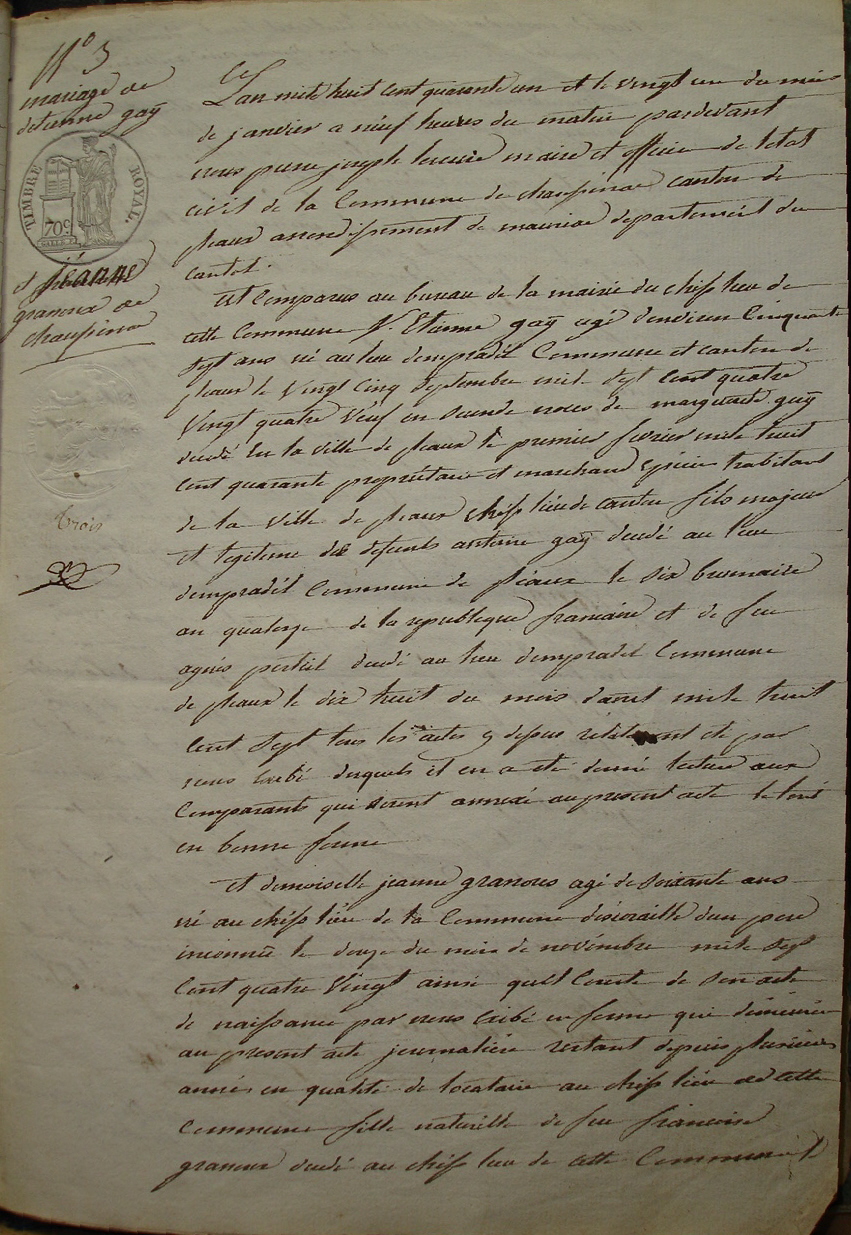 N° 3
mariage de
detienne gaÿ
TIMBRE ROYAL.
70c
et jeanne
granoux de
chaussenac
trois
L'an mile huit cent quarante un et le vingt un du mois
de janvier a neuf heures du matin pardevant
nous pierre joseph maire et officier de letat
civil de la Commune de chaussenac canton de
pleaux arrondissement de mauriac departement du
cantal.
Est Comparus au bureau de la mairie du chif lieu de
cette Commune Sr. Etienne gaÿ agé denviron Cinquante
sept ans né au lieu dempradel Commune et canton de
pleaux le Vingt Cinq Septembre mile sept Cent quatre
Vingt quatre Veuf en seconde noces de marguerite gaÿ
decedé En la ville de pleaux le premier fevrier mile huit
Cent quarante propriétaire et marchand Epicier habitant
de la Ville de pleaux chif lieu de canton fils majeur
et legitime des defunts antoine gaÿ decedé au lieu
dempradel Commune de pléaux le Six brumaire
an quatorze de la republique francaise et de feu
agnès decedé au lieu dempradel Commune
de pleaux le dix huit du mois daout mile huit
Cent Sept tous les actes cy depus été par
nous Exibé desquels il en a eté donné lecture aux
Comparants qui seront annexé au present acte le tout
en bonne forme
Et demoiselle jeanne granoux agé de Soixante ans
né au chif liéu de la Commune descoraille dun pere
inconnue le douze du mois de novémbre mile Sept
Cent quatre Vingt ainsi quil Conste de Son acte
de naissance par nous Exibé en forme qui démeurera
au present acte journaliére restant depuis plusieurs
anné en qualité de locataire au chif liéu de cette
Commune fille naturelle de feu francoise
granoux decedé au chif lieu de cette Commune